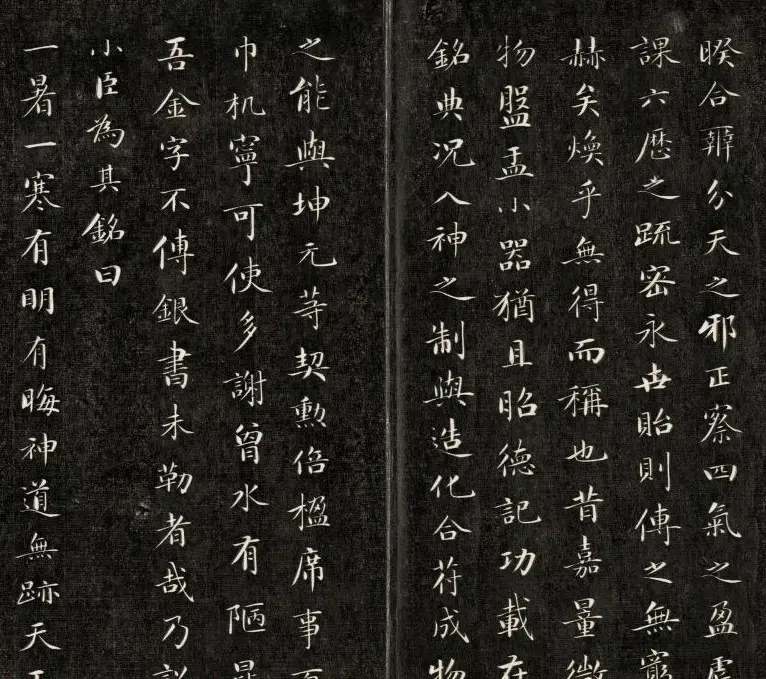 暌合辨分天之邪正察四氣之盈虛
課六歷之疏密永世貽則傳之無窮
赫矣煥乎無得而稱也昔嘉量微
物盤盂小器猶且昭德記功載在
銘典況入神之制與造化合苻成物
之能與坤元䓁契勳倍楹席事
巾机寧可使多謝曾水有陋昆
吾金字不傳銀書未勒者哉乃詔
小臣為其銘曰
一暑一寒有明有晦神道無跡天